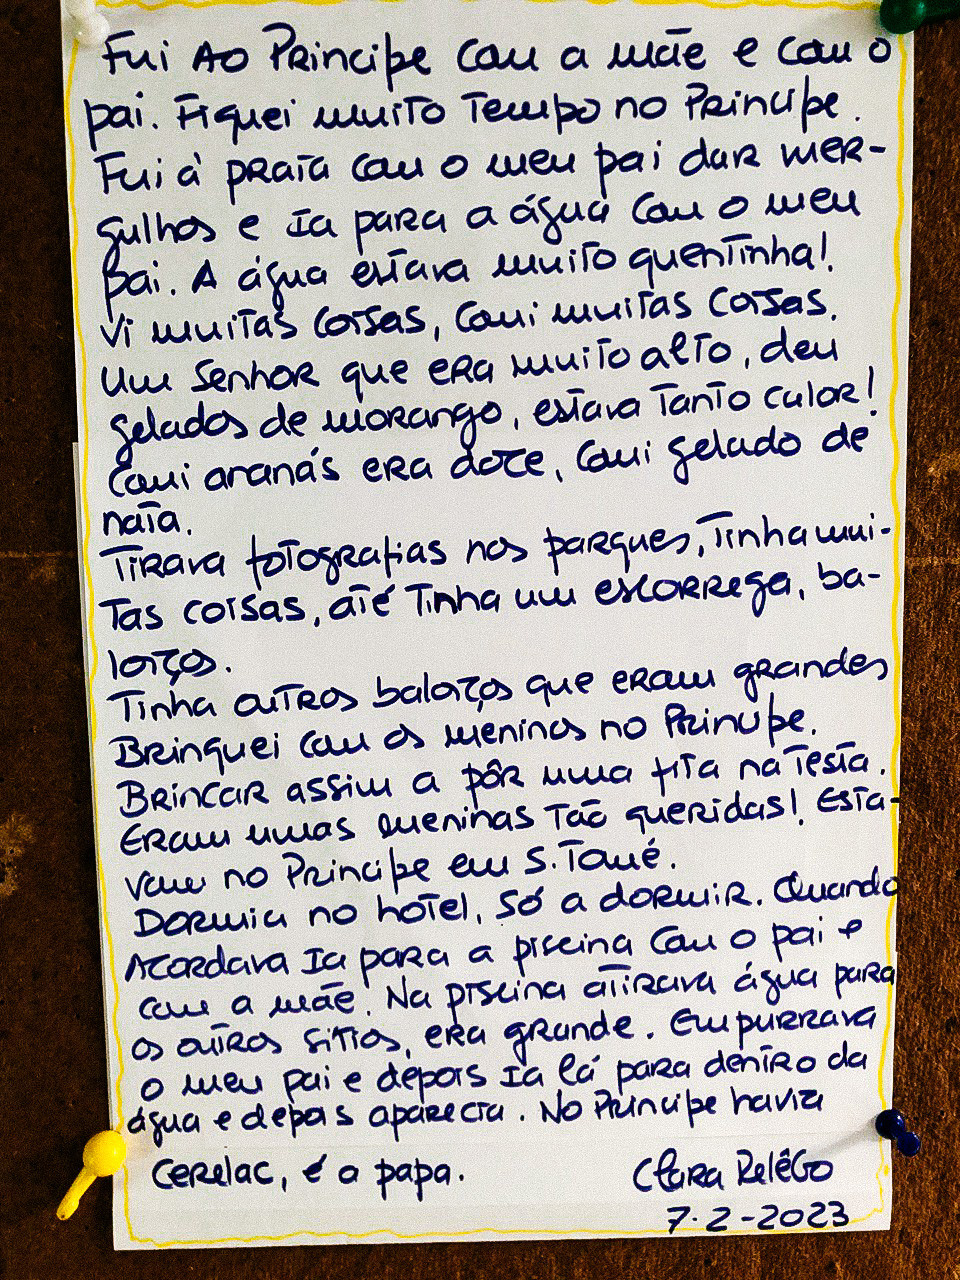 Fui ao Principe com a mãe e com o
pai. Fiquei muito tempo no Principe.
Fui à praia com o meu pai dar mer-
gulhos e ia para a água com o meu
pai. A água estava muito quentinha!
Vi muitas coisas, comi muitas coisas.
Um senhor que era muito alto, deu
gelados de morango, estava tanto calor!
Comi ananás era doce, comi gelado de
nata.
Tirava fotografias nos parques, tinha mui-
tas coisas, até tinha um escorrega, ba-
loiços.
Tinha outros baloiços que eram grandes
Brinquei com os meninos no Principe.
Brincar assim a pôr uma fita na testa.
Eram umas meninas tão queridas! Esta-
vam no Principe em S. Tomé.
Dormia no hotel, só a dormir. Quando
acordava ia para a piscina com o pai e
com a mãe. Na piscina atirava água para
os outros sitios, era grande. Empurrava
o meu pai e depois ia lá para dentro da
água e depois aparecia. No Principe havia
Cerelac, é a papa.
Clara Relêgo
7-2-2023